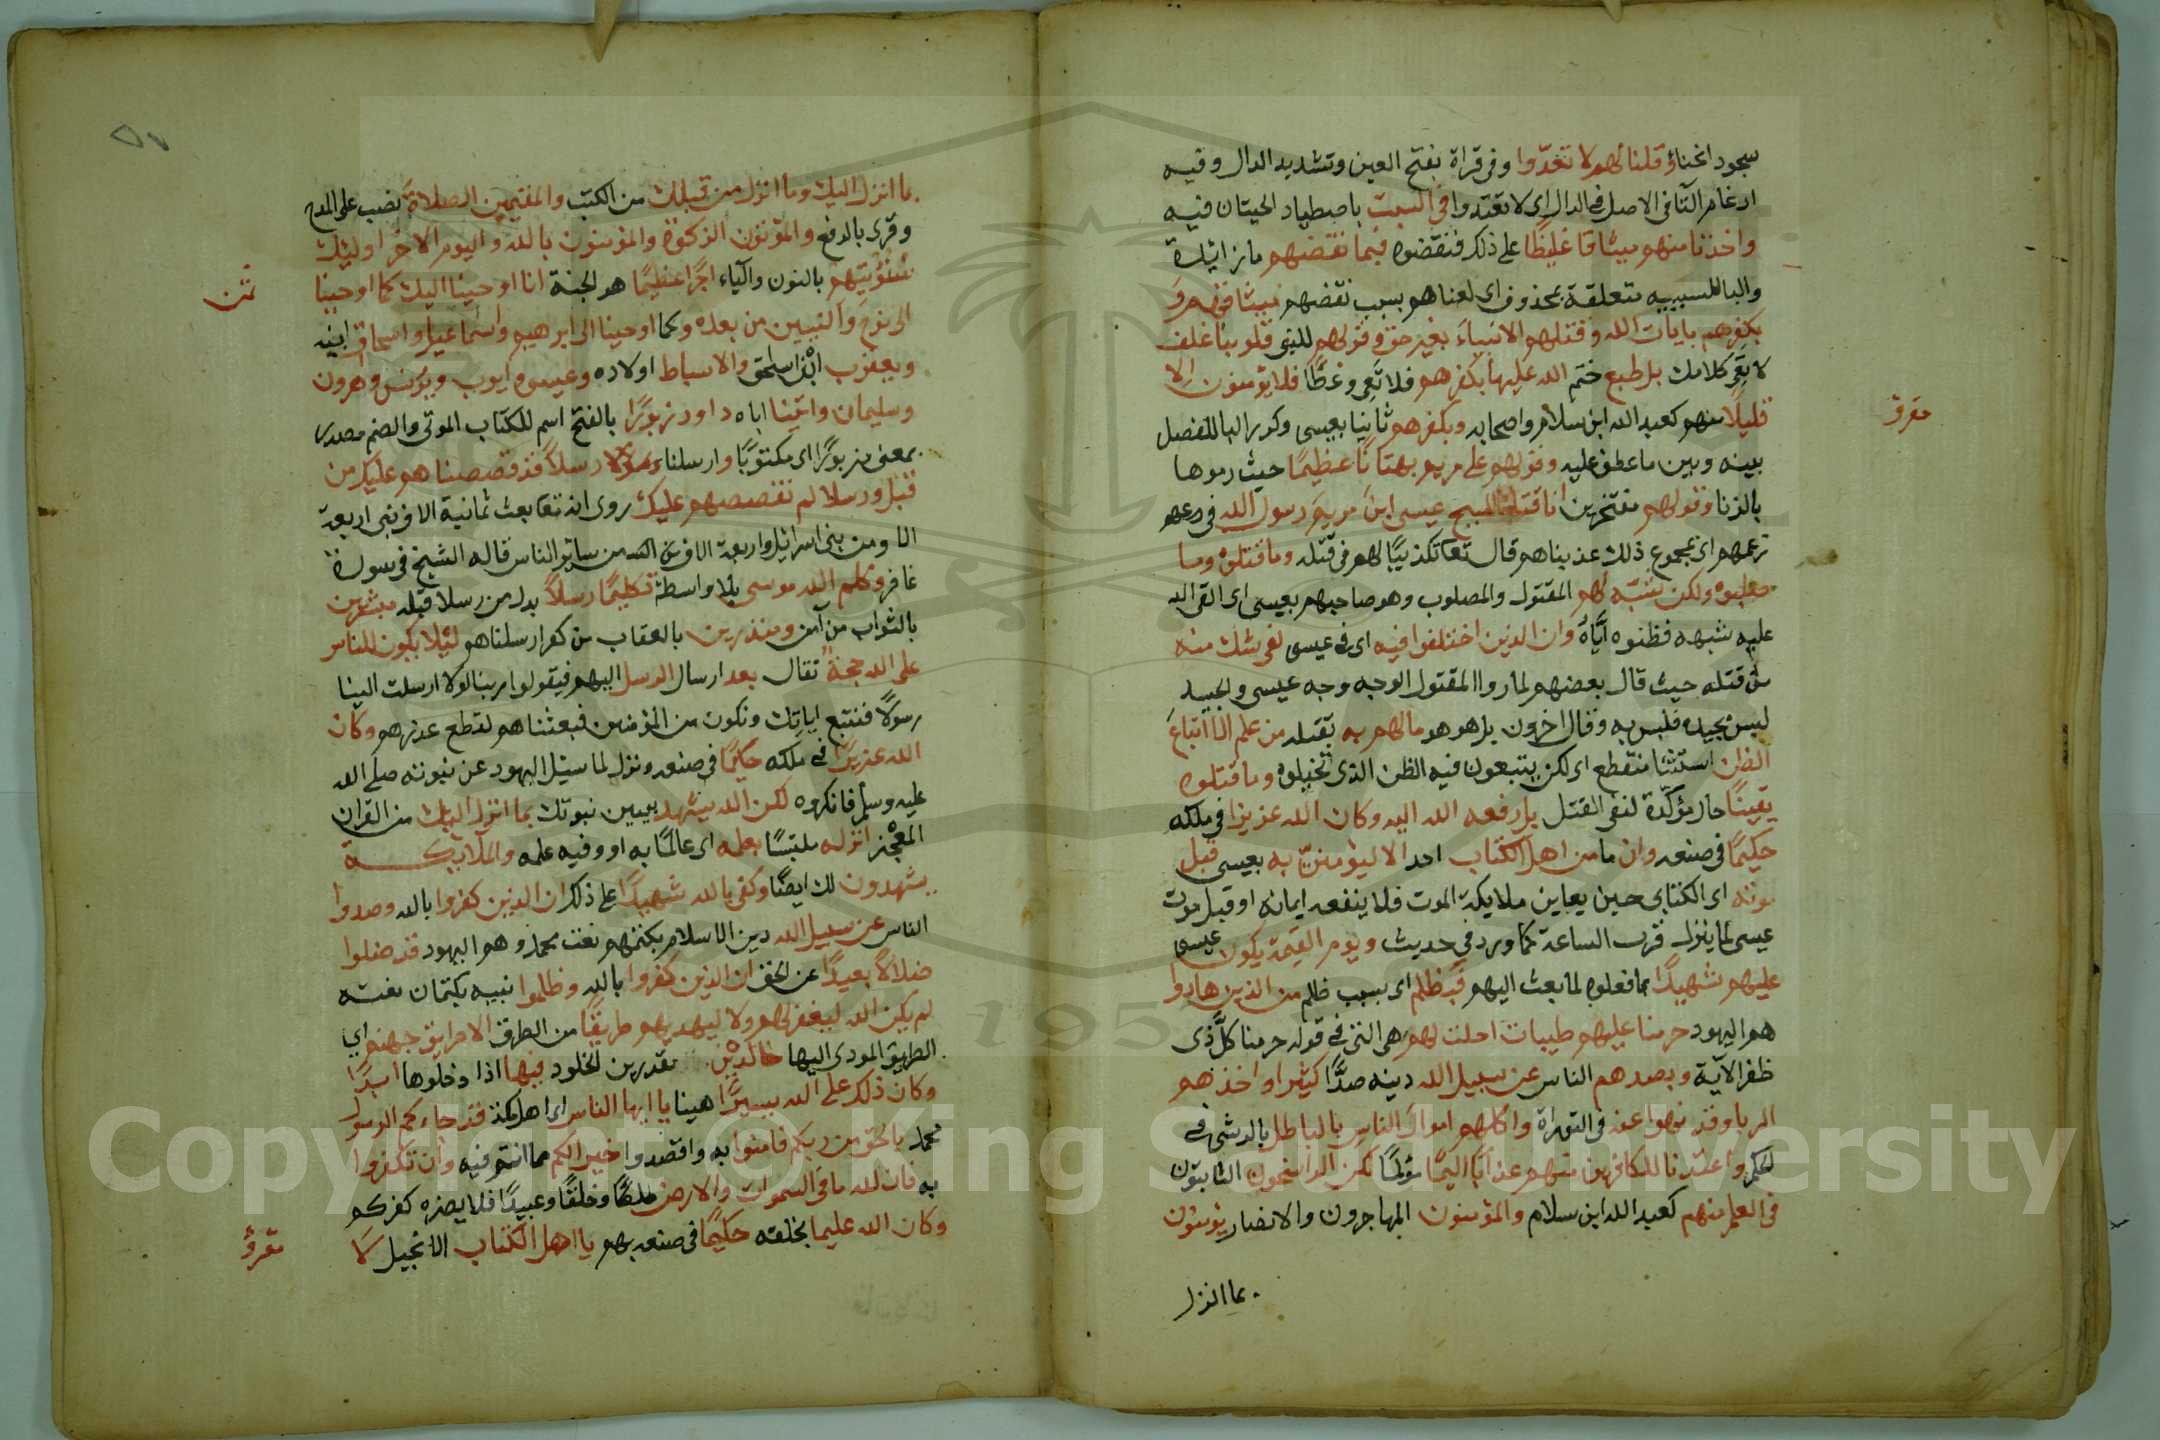 سجود انحناء وقلنا لهم لا تعدوا وفى قراة بفتح العين وتشديد الدال وفيه
ادغام التا فى الاصل فى الدال اى لا تعتدوا فى السبت باصطياد الحيتان فيه
واخذنا منهم ميثاقا غليظًا على ذلك فنقضوه فبما نقضهم ما زائدة
والبا للسببيه متعلقة بمحذوف اى لعناهم بسبب نقضهم ميثاقهم و
بكفرهم بايات الله وقتلهم الانبياءَ بغير حق وقولهم للنبى قلوبنا غلف
لا تعى كلامك بل طبع ختم الله عليها بكفرهم فلا تعى وعظًا فلا يؤمنون الا
قليلًا منهم كعبد الله ابن سلام واصحابه وبكفرهم ثانيا بعيسى وكرر البا للفصل
مقرؤ
بينه وبين ما عطف عليه وقولهم على مريم بهتانًا عظيمًا حيث رموها
بالزنا وقولهم مفتخرين انا قتلنا المسيح عيسى ابنَ مريمَ رسول الله فى
زعمهم اى بمجموع ذلك عذبناهم قال تعا تكذيبًا لهم فى قتله وما قتلوه وما
صلبوه ولكن شبّه لهم المقتول والمصلوب وهو صاحبهم بعيسى اى القى الله
عليه شبهه فظنوه ايّاهُ وان الذين اختلفوا فيه اى فى عيسى لفى شك منه
من قتله حيث قال بعضهم لما راوا المقتول الوجه وجه عيسى والجسد
ليس بجسده فليس به وقال اخرون بل هو هو ما لهم به بقتله من علم الا اتباعَ
الظن استثنا منقطع اى لكن يتبعون فيه الظن الذى تخيلوه وما قتلوه
يقينًا حال مؤكّدة لنفى القتل بل رفعه الله اليه وكان الله عزيزا فى ملكه
حكيمًا فى صنعه وان ما من اهل الكتاب احد الا ليؤمننّ به بعيسى قبل
موته اى الكتابى حين يعاين ملايكة الموت فلا ينفعه ايمانه او قبل موت
عيسى لما ينزل قرب الساعة كما ورد في حديث ويوم القيمة يكون عيسى
عليهم شهيدًا بما فعلوه لما بعث اليهم فبظلم اى بسبب ظلم من الذين هادوا
هم اليهود حرمنا عليهم طيبات احلت لهم هى التى فى قوله حرمنا كلَّ ذى
ظفر الآية وبصدهم الناس عن سبيل الله دينه صدًّا كثيرا واخذهم
الربا وقد نهوا عنه فى التوراة واكلهم اموال الناس بالباطل بالرشى فى
الحكم واعتدنا للكافرين منهم عذابًا اليمًا مؤلمًا لكن الراسخون الثابتون
فى العلم منهم كعبد الله ابن سلام والمؤمنون المهاجرون والانصار يؤمنون
بما انزل
ما انزل اليك وما انزل من قبلك من الكتب والمقيمين الصلاة نصب على المدح
وقرى بالرفع والمؤتون الزكوة والمؤمنون بالله واليوم الاخر اوليك
سنؤتيهم بالنون والياء اجرًا عظيمًا هو الجنة انا اوحينا اليك كما اوحينا
ثمن
الى نوح والنبيين من بعده وكما اوحينا الى ابرهيم واسماعيل واسحاق ابنيه
ويعقوب ابْن اسحق والاسباط اولاده وعيسى وايوب ويونس وهرون
وسليمان واتينا اباه داود زبورًا بالفتح اسم للكتاب الموتى والضم مصدر
بمعنى مزبورًا اى مكتوبًا وارسلنا رسلًا قد قصصناهم عليك من
قبل ورسلا لم نقصصهم عليك روى انه تعا بعث ثمانية الاف نبى اربعة
الاف من بنى اسرائيل واربعة الاف من ساير الناس قاله الشيخ فى سورة
غافر وكلم الله موسى بلا واسطة تكليمًا رسلًا بدل من رسلا قبله مبشرين
بالثواب من آمن ومنذرين بالعقاب من كفر ارسلناهم لئلا يكون للناس
على الله حجة تقال بعد ارسال الرسل اليهم فيقولوا ربنا لولا ارسلت الينا
رسولًا فنتبع اياتك ونكون من المؤمنين فبعثناهم لقطع عذرهم وكان
الله عزيزًا فى ملكه حكيمًا فى صنعه ونزل لما سئل اليهود عن نبوته صلى الله
عليه وسلم فانكروه لكن الله يشهد يبين نبوتك بما انزل اليك من القران
المعجز انزله ملتبسًا بعلمه اى عالمًا به او وفيه علمه والملايكة
يشهدون لك ايضًا وكفى بالله شهيدًا على ذلك ان الذين كفروا بالله وصدوا
الناس عن سبيل الله دين الاسلام بكتمهم نعت محمد وهم اليهود قد ضلوا
ضلالًا بعيدًا عن الحق ان الذين كفروا بالله وظلموا نبيه بكتمان نعته
لم يكن الله ليغفر لهم ولا ليهديهم طريقًا من الطرق الا طريق جهنم اي
الطريق المودى اليها خالدين مقدرين الخلود فيها اذا دخلوها ابدًا
وكان ذلك على الله يسيرًا هينا يا ايها الناس اى اهل مكة قد جاءكم الرسول
محمد بالحق من ربكم فامنوا به واقصدوا خيرا لكم مما انتم فيه وان تكفروا
به فان لله ما فى السموات والارض ملكًا وخلقًا وعبيدًا فلا يضره كفركم
وكان الله عليما بخلقه حكيمًا فى صنعه بهم يا اهل الكتاب الانجيل لا
مقرؤ
Copyright © King Saud University
195